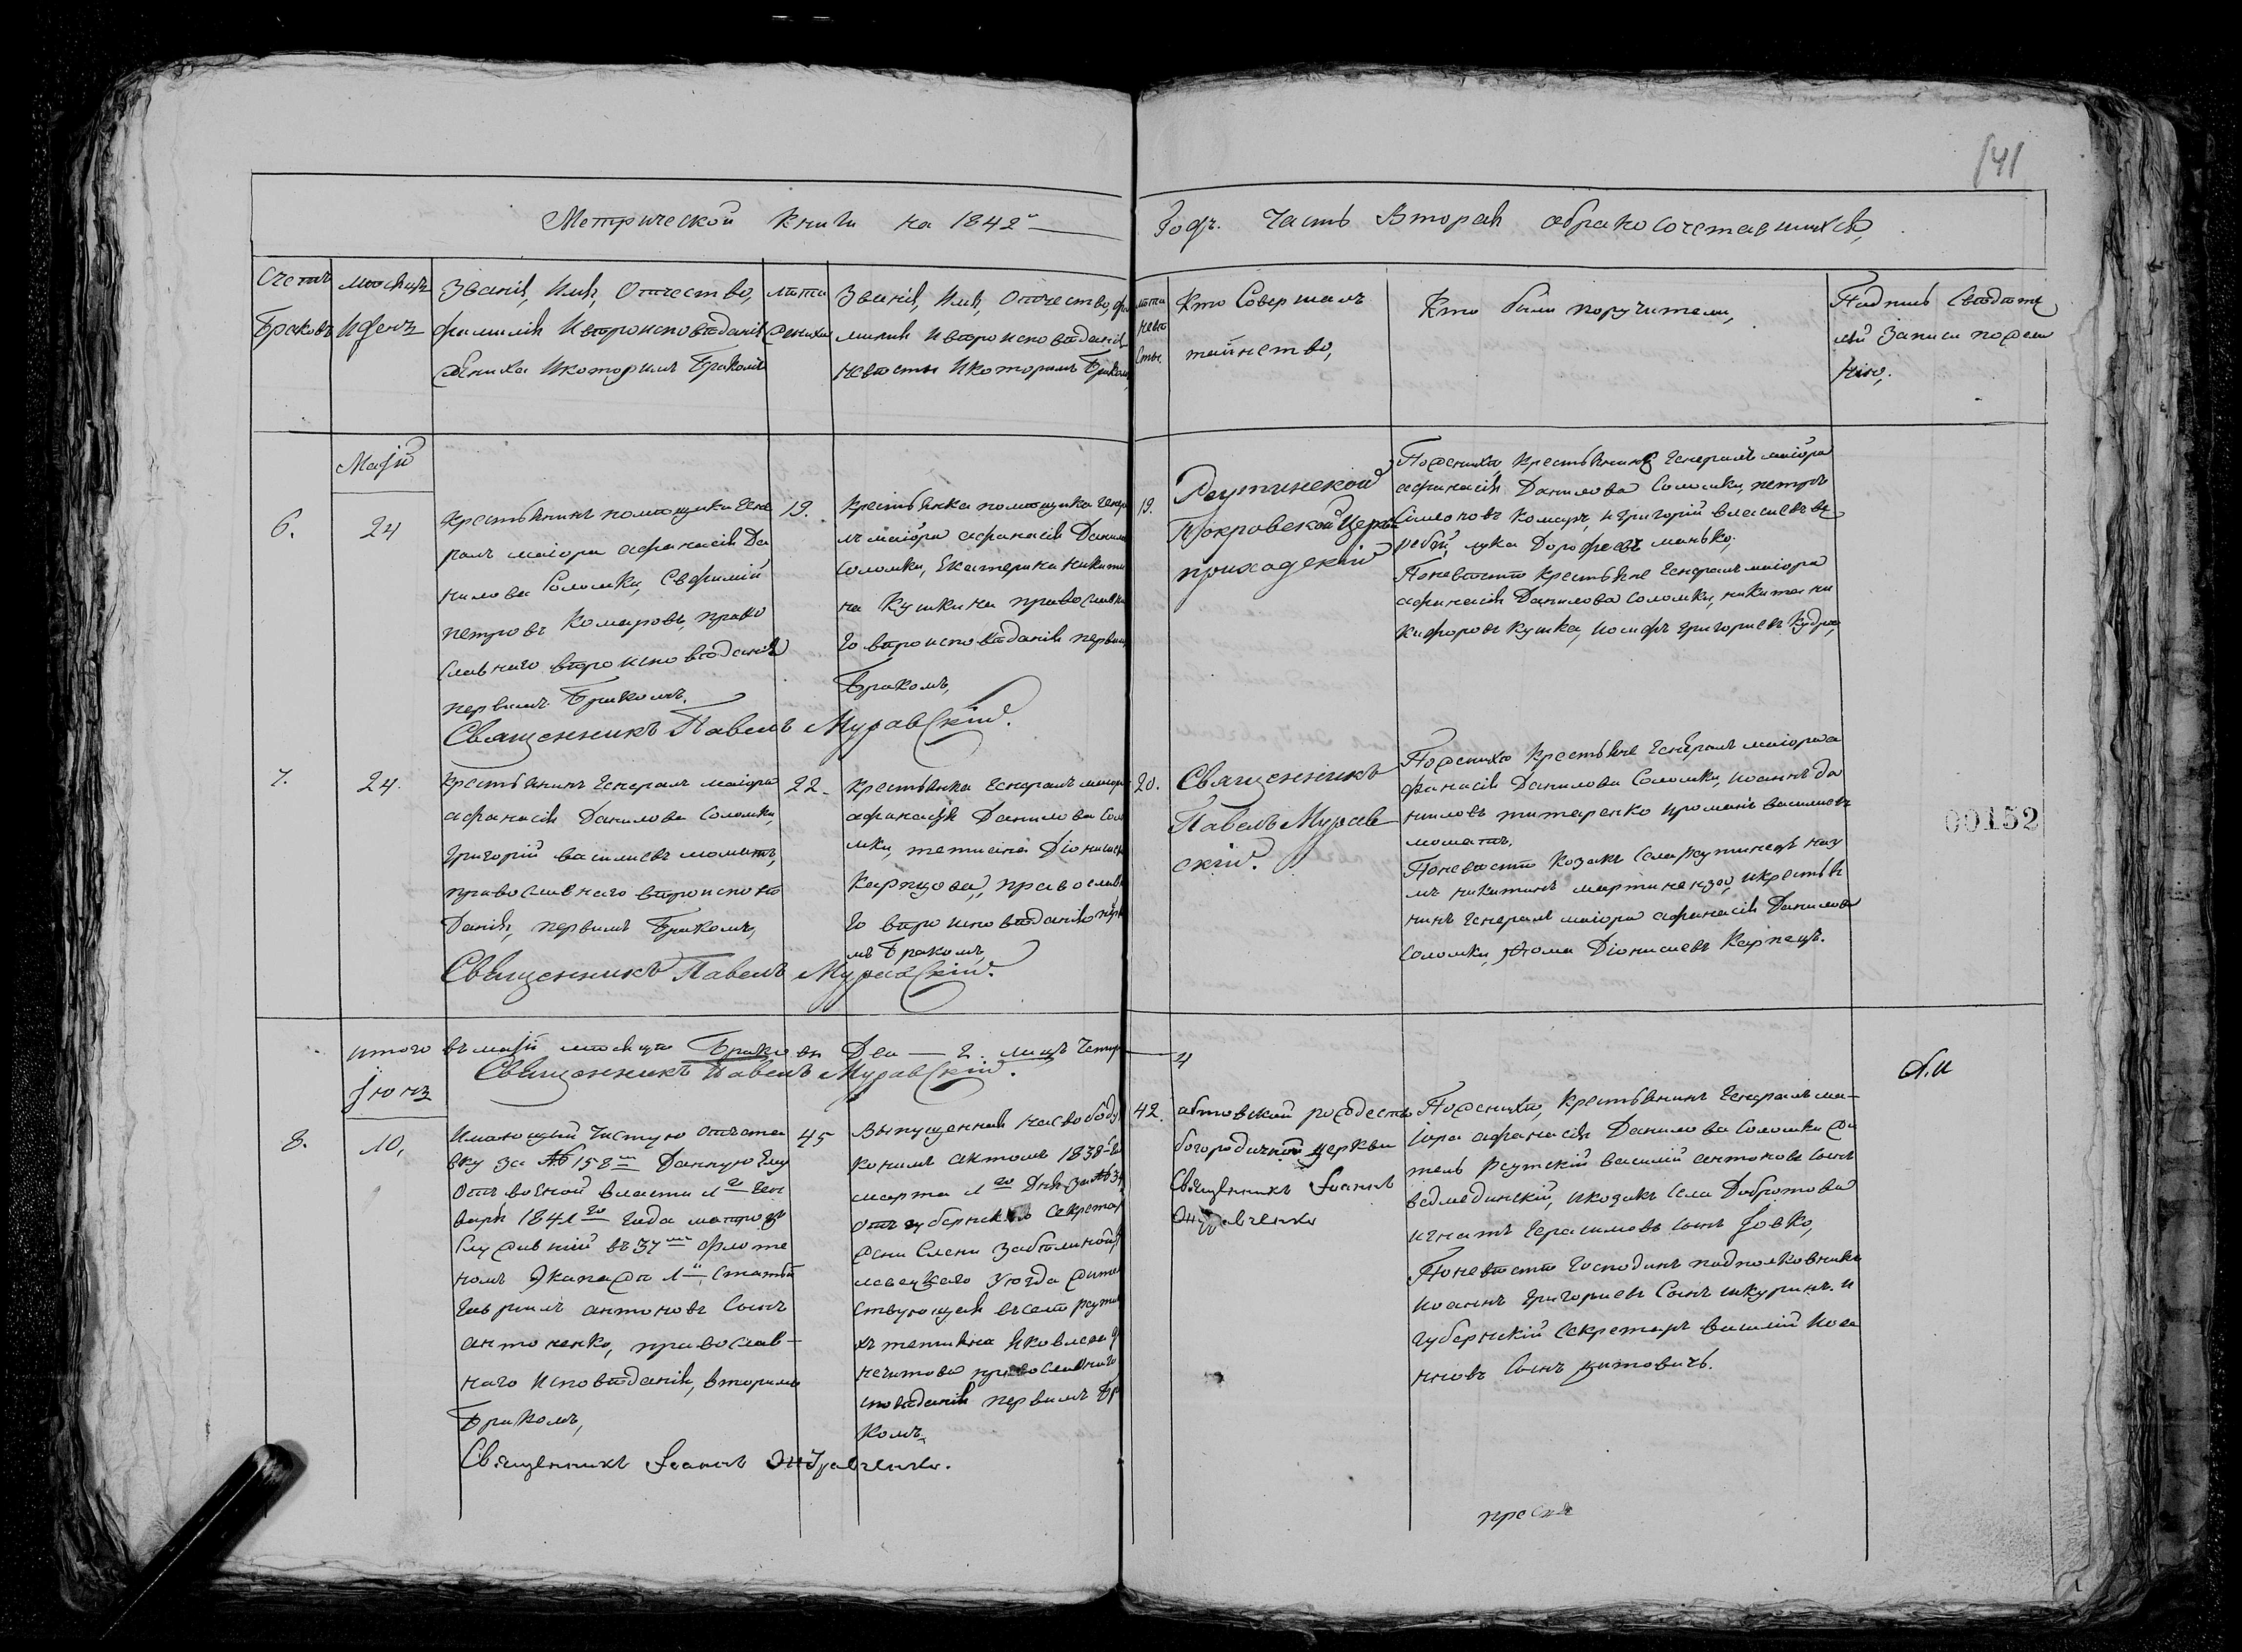 141
Метрической книги на 1842й Годъ. Часть Вторая обракосочетавшихся,
Счетъ
Браковъ
Мѣсяцъ
И день
Званія, Имя, Отчество,
фамилія И вѣроисповѣданія
жениха И которымъ Бракомъ
лѣта
жениха
Званія, Имя, Отчество, фа
милия И вѣроисповѣданія
невѣсты И которымъ Бракомъ,
лѣта
невѣ
сты
Кто Совершалъ
таинство,
Кто были поручители,
Подпись Свидѣте
лей Записи по жела
нію,
Маія
6.
24
Крестьянинъ помѣщика Гене
ралъ маіора афанасія Да
нилова Соломки, Евфимій
петровъ Комаровъ, право
славнаго вѣроисповѣданія
первымъ Бракомъ.
19.
Крестьянка помѣщика Генера
лъ маіора афанасія Данило
Соломки, Екатерина Никити
на Кушкина православна
го вѣроисповѣданія первым
Бракомъ,
19.
Реутинской
Покровской Церкви
приходскій
По женихѣ Крестьянинъ Генералъ маіора
афанасія Данилова Соломки, петръ
Симоновъ Комаръ, и Григорій власиевъ ве
ребій, лука Дорофеевъ манько,
По невѣстѣ Крестьяне Генералъ маіора
афанасія Данилова Соломки, никита ни
кифоровъ Кушка, иосифъ григориевъ Кудра,
Священникъ Павелъ Муравскій.
7.
24.
Крестьянинъ Генералъ маіора
афанасія Данилова Соломки,
Григорій василиевъ моматъ,
православнаго вѣроисповѣ
Данія, первымъ Бракомъ,
22.
Крестьянка Генералъ маіора
афанасія Данилова Соло
мки, татиана Діонисиева
Карпцова, православна
го вѣроисповѣданія первы
мъ Бракомъ,
20.
Священникъ
Павелъ Мурав
скій.
По женихѣ Крестьяне Генералъ маіора а
фанасія Данилова Соломки, иоаннъ да
ниловъ титаренко и романъ василиевъ
моматъ.
По невѣстѣ Козакъ Села реутинецъ нау
мъ никитинъ и Крестья
нинъ Генералъ маіора афанасія Данилова
Соломки, Фома Діонисиевъ Карпецъ.
Священникъ Павелъ Муравскій.
00152
итого въ маіи мѣсяцѣ Браковъ Два — 2. лицъ Четыр — 4
Священникъ Павелъ Муравскій.
Іюнь
8.
10,
Имѣющій Чистую отста
вку за № 158м Данную Ему
отъ военой власти 1го Ген
варя 1841го года матрозъ
служившій въ 37мъ флотс
комъ Экипажѣ 1й Статьи
Гавриилъ антоновъ Сынъ
антоненко, православ-
наго Исповѣданія, вторымъ
Бракомъ,
45
Выпущенная на свободу
конымъ актомъ 1838го
марта 1го Дня за №
отъ губернскаго Секретар
жени Елени Забѣлиной,
уѣзда жите
льствующая въ селѣ реути
хъ татиана яковлева
православнаго
споведанія первымъ Бра
комъ.
42.
Рождество
богородичной церкви
Священникъ Іоаннъ
По женихѣ, Крестьянинъ Генералъ ма-
іора афанасія Данилова Соломки жи
тель реутскій василій антоновъ сынъ
ведмединскій, и козакъ села Добротова
игнатъ Герасимовъ сынъ Іовко,
По невѣстѣ Господинъ подполковникъ
иоаннъ григориевъ Сынъ шкуринъ. и
губернскій Секретарь василій иоа
нновъ Сынъ титовичъ.
Священникъ Іоаннъ